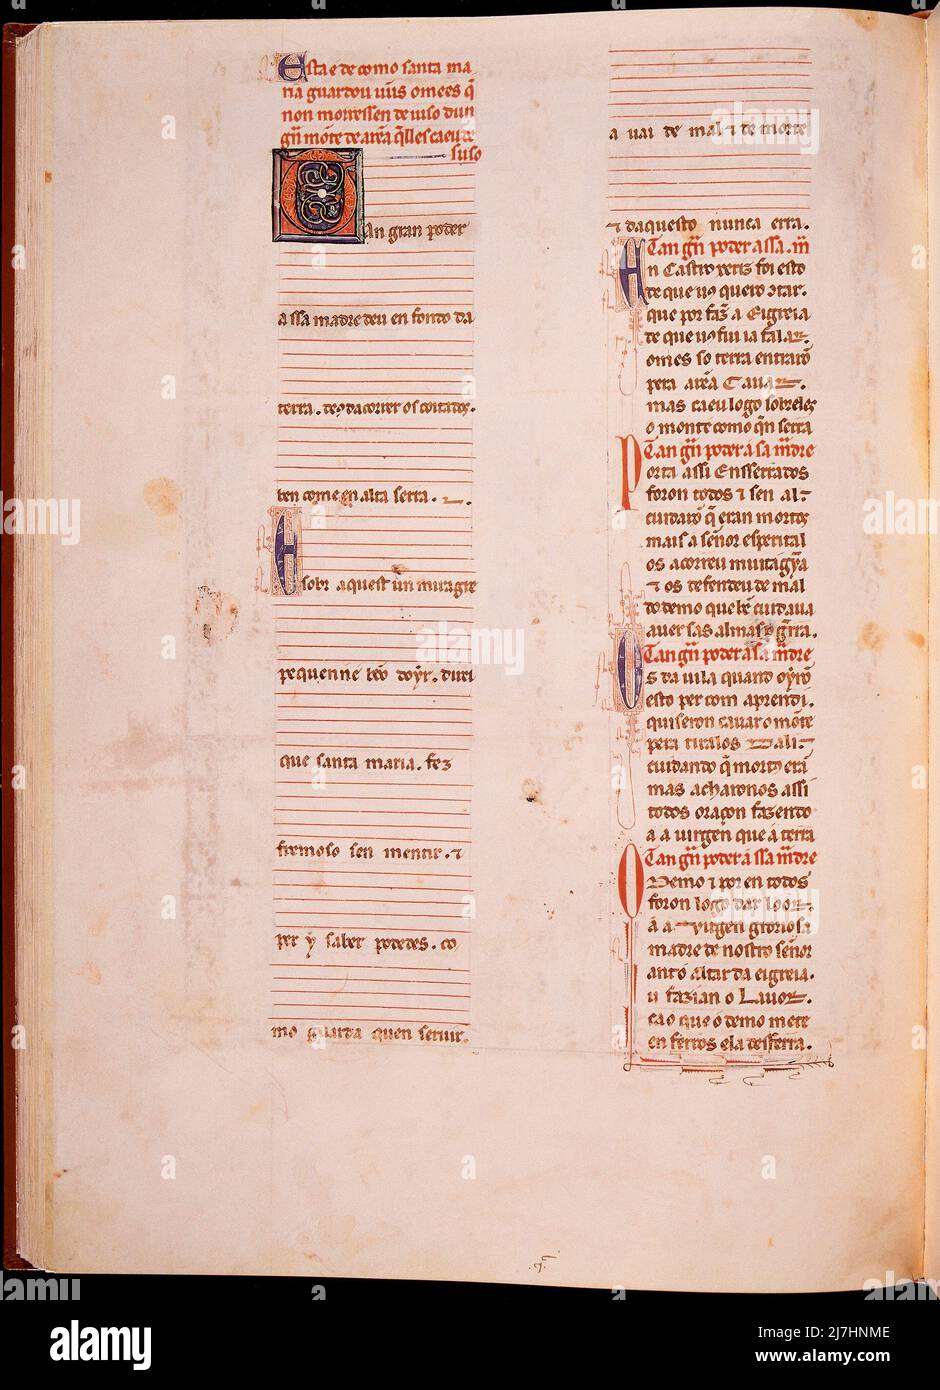 Esta e de como santa ma
ria guardou ũus omẽes q̃
non morressen de iuso dun
grã mõte de arẽa q̃lles caeu de
suso
Tan gran poder
a ssa madre deu en fondo da
terra. de nos dacorrer os coitados.
ben come en alta serra.
E sobr aquest un miragre
pequenne bẽo doyr. direi
que santa maria. fez
fremoso sen mentir. ⁊
per ý saber podedes. co
mo guarda quen seruir.
a uai de mal ⁊ de morte
⁊ daquesto nunca erra.
Tan grã poder a ssa. m̃
En Castro xeriz foi esto
de que uos quero ɔtar.
que por faz̃ a Eigreia
de que uos fiu ia falar.
omes so terra entrarõ
pera arẽa Cauar.
mas caeu logo sobreles
o monte como q̃n serra
Tan grã poder a sa m̃dre
Porta assi Ensserrados
foron todos ⁊ sen al
cuidarõ q̃ eran mortos
mais a señor esperital
os acorreu muit agỹa
⁊ os defendeu de mal
do demo que bẽ cuidaua
auer sas almas p̃ grra.
Tan grã poder a sa m̃dre
Os da uila quand oyrõ
esto per com aprendi.
quiseron cauar o mõte
pera tiralos Dali
cuidando q̃ mortos erã
mas acharonos assi
todos oraçon fazendo
a a uirgen que á terra
Tan grã poder á ssa m̃dre
O Demo ⁊ por en todos
foron logo dar loor.
á a Uirgen groriosa
madre de nostro señor
antó Altar da eigreia.
u fazian o Lauor.
ca o que o demo mete
en ferros ela desferra.
alamy
Image ID: 2J7HNME
www.alamy.com